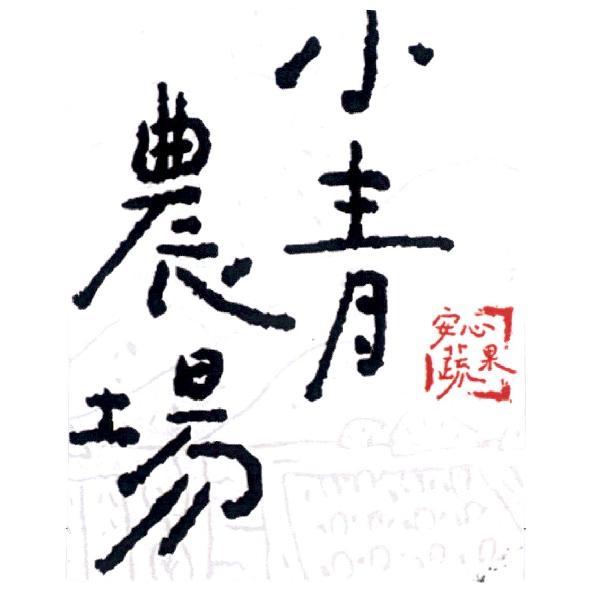 小青
農場
安心
蔬果